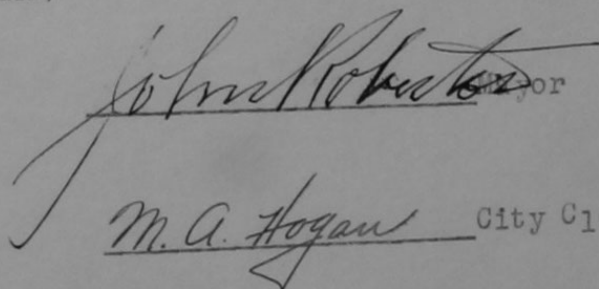 John Roberton Mayor
M. A. Hogan City Cl